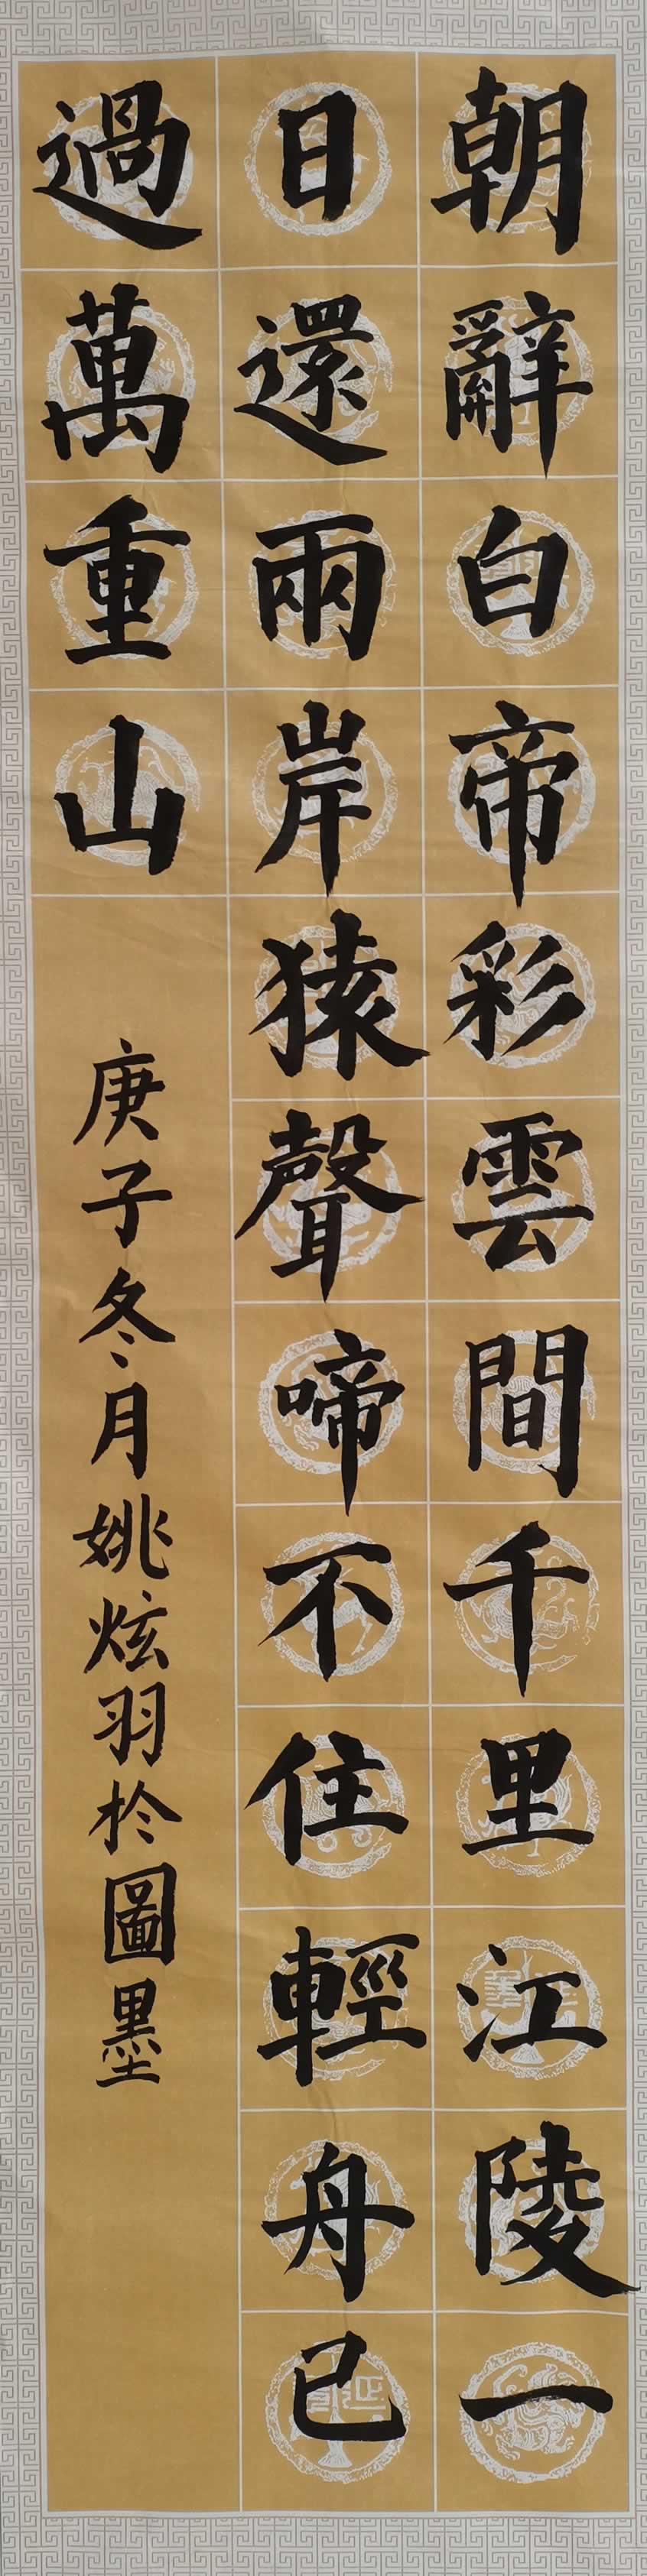 朝辭白帝彩雲間千里江陵一
日還兩岸猿聲啼不住輕舟已
過萬重山
庚子冬月姚炫羽於圖墨